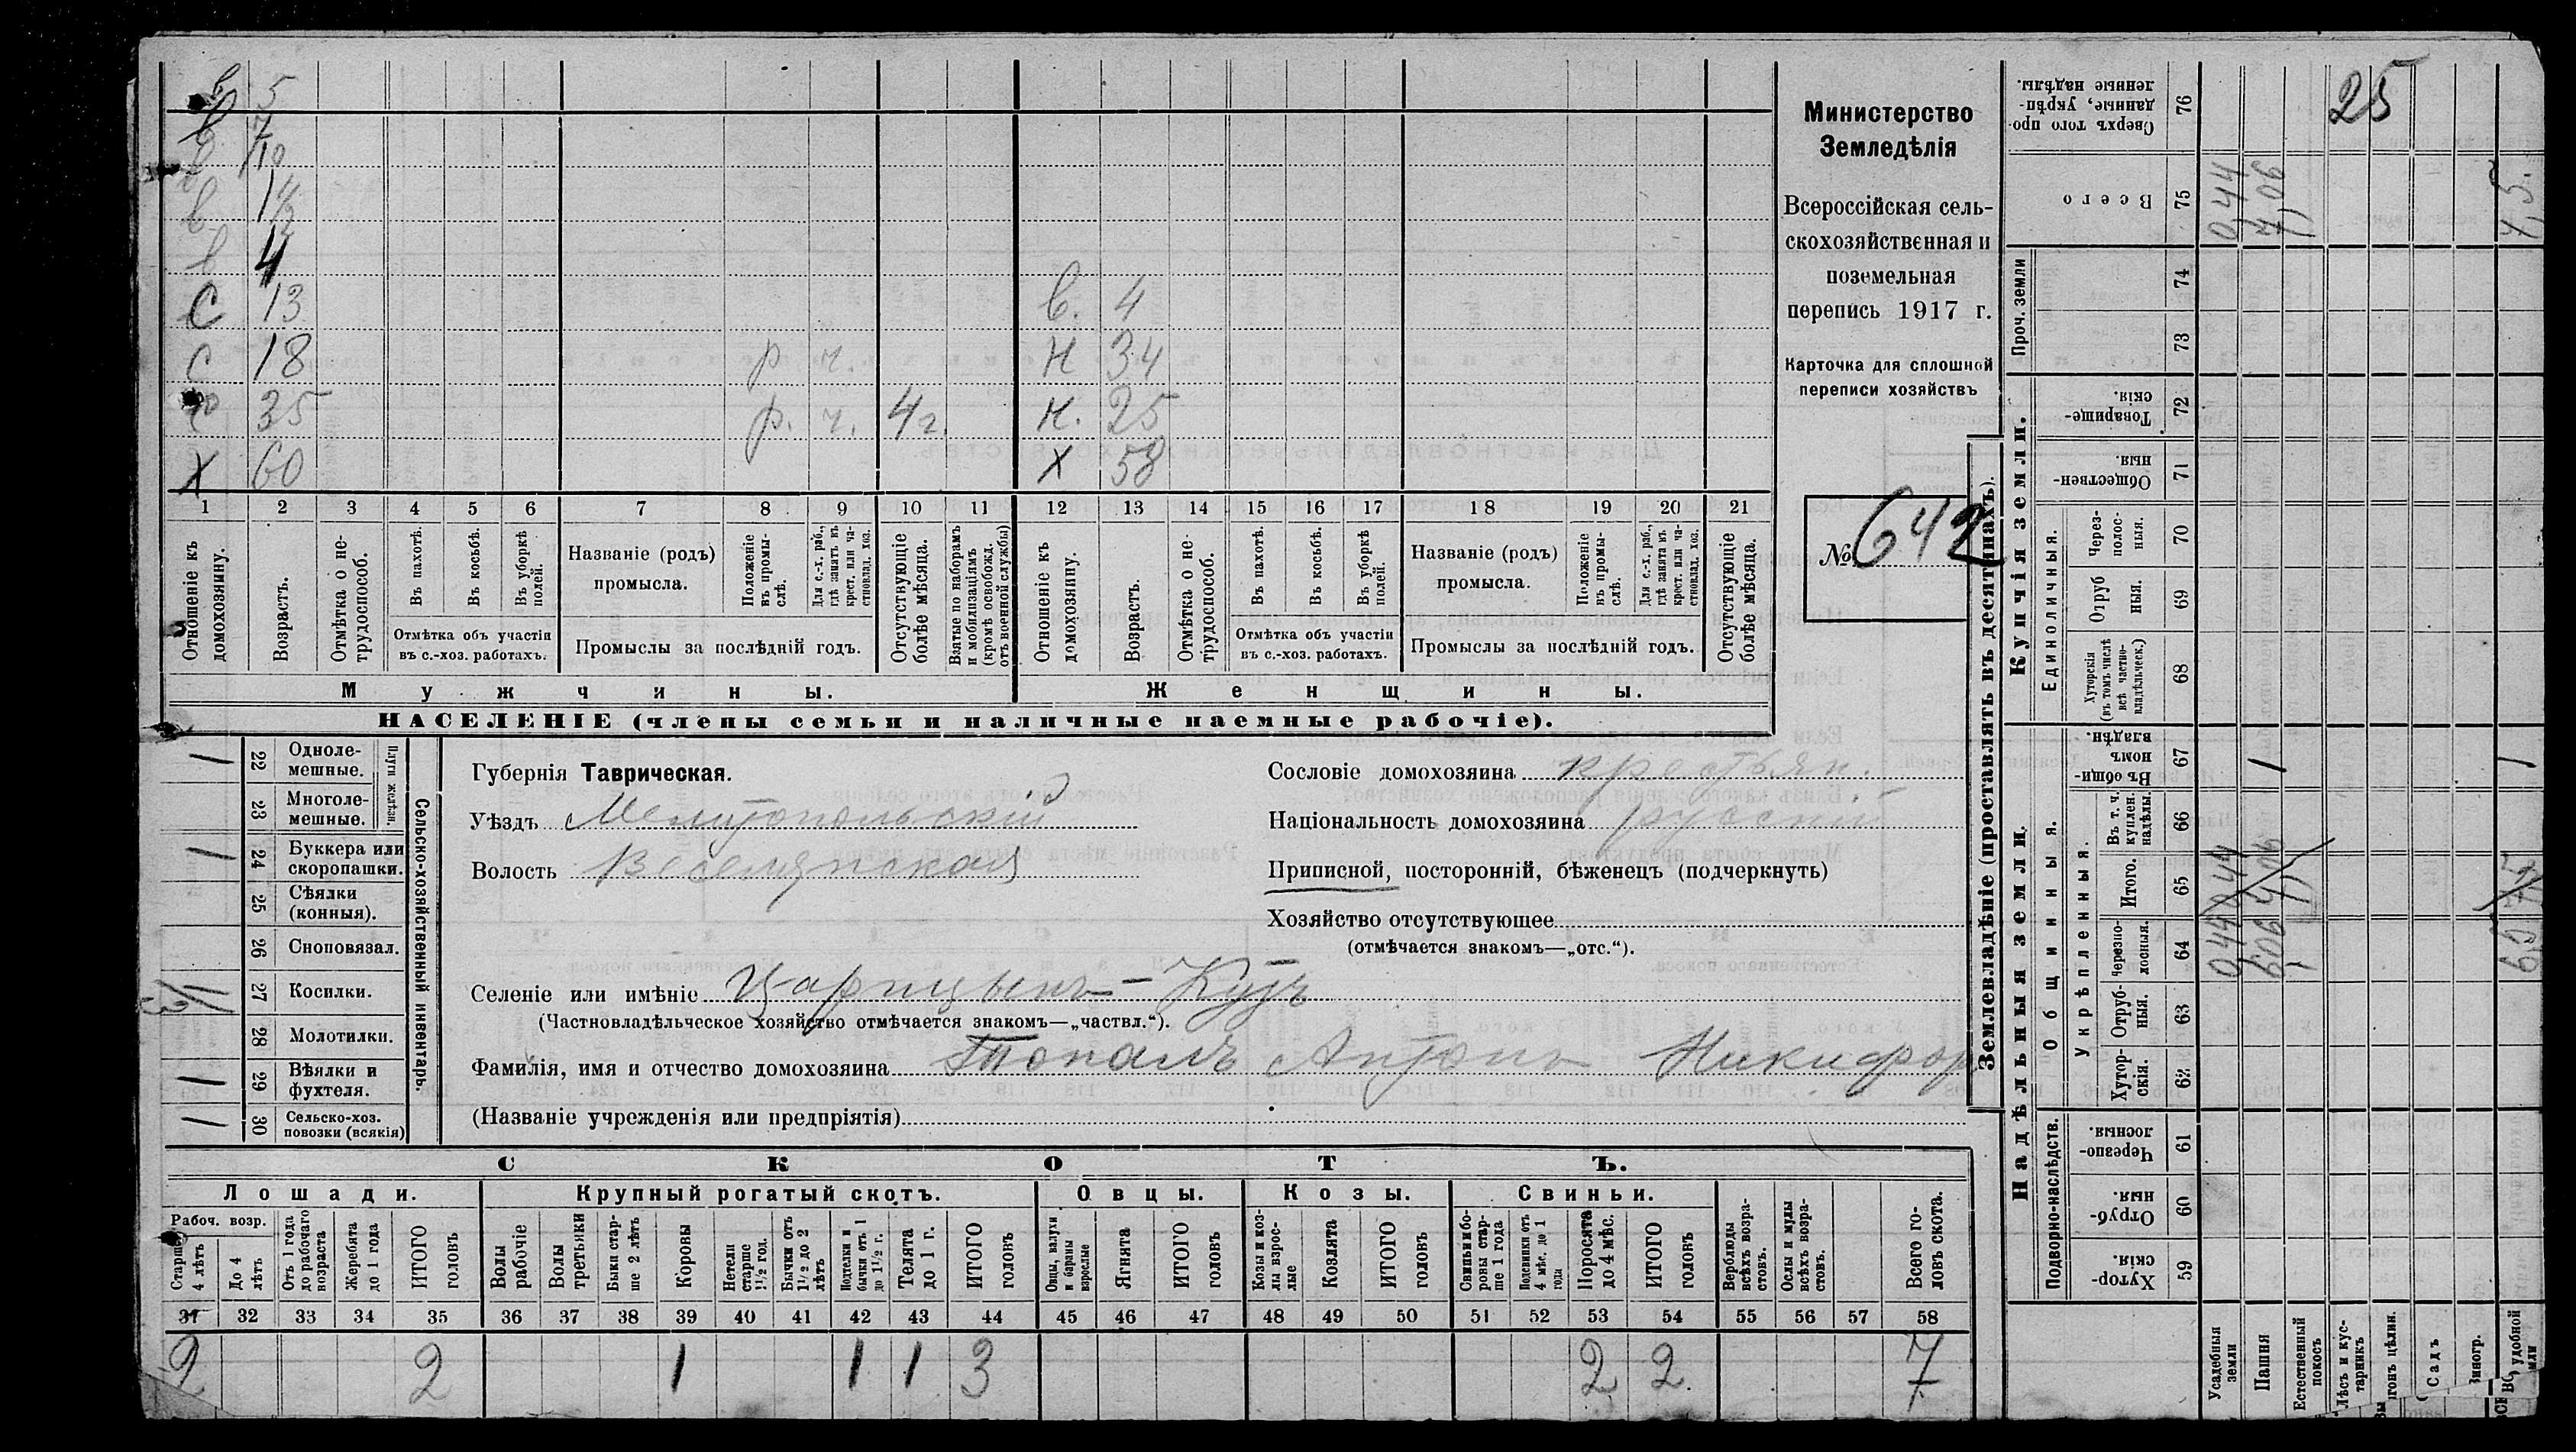 в 5
в 7
в 10
в 1 1/2
в 4
С 13 в. 4
С 18 р ч. Н 34
35 р. ч. 4 г. Н. 25
Х 60 Х 58
1 2 3 4 5 6 7 8 9 10 11 12 13 14 15 16 17 18 19 20 21
Отношеніе къ домохозяину.
Возрастъ.
Отмѣтка о нетрудоспособ.
Въ пахотѣ.
Въ косьбѣ.
Въ уборкѣ полей.
Отмѣтка объ участіи
въ с.-хоз. работахъ.
Названіе (родъ)
промысла.
Положеніе въ промы-слѣ.
Для с.-х. раб., гдѣ занятъ въ крест. или ча-стновлад. хоз.
Промыслы за послѣдній годъ.
Отсутствующіе болѣе мѣсяца.
Взятые по наборамъ и мобилизаціямъ (кромѣ освобожд. отъ военной службы)
Отношеніе къ домохозяину.
Возрастъ.
Отмѣтка о не-трудоспособ.
Въ пахотѣ.
Въ косьбѣ.
Въ уборкѣ полей.
Отмѣтка объ участіи
въ с.-хоз. работахъ.
Названіе (родъ)
промысла.
Положеніе въ промы-слѣ.
Для с.-х. раб., гдѣ занята въ крест. или ча-стновлад. хоз.
Промыслы за послѣдній годъ.
Отсутствующіе болѣе мѣсяца.
Мужчины.
Женщины.
НАСЕЛЕНІЕ (члены семьи и наличные наемные рабочіе).
Министерство
Земледѣлія
Всероссійская сель-
скохозяйственная и
поземельная
перепись 1917 г.
Карточка для сплошной
переписи хозяйствъ
№ 642
Сельско-хозяйственный инвентарь.
Плуги желѣзн.
22 Одноле-мешные. 1
23 Многоле-мешные.
24 Буккера или скоропашки. 1
25 Сѣялки (конныя).
26 Сноповязал.
27 Косилки.
28 Молотилки.
29 Вѣялки и фухтеля. 1
30 Сельско-хоз. повозки (всякія) 1
Губернія Таврическая.
Уѣздъ Мелитопольскій
Волость Веселянская
Сословіе домохозяина крестьян.
Національность домохозяина русскій
Приписной, посторонній, бѣженецъ (подчеркнуть)
Хозяйство отсутствующее
(отмѣчается знакомъ—„отс.“).
Селеніе или имѣніе Царицынъ-Кутъ
(Частновладѣльческое хозяйство отмѣчается знакомъ—„частвл.“).
Фамилія, имя и отчество домохозяина Топалъ Антонъ Никифор
(Названіе учрежденія или предпріятія)
СКОТЪ.
Лошади.
Крупный рогатый скотъ.
Овцы.
Козы.
Свиньи.
Рабоч. возр.
Старше 4 лѣтъ
До 4 лѣтъ
Отъ 1 года до рабочаго возраста
Жеребята до 1 года
ИТОГО головъ
Волы рабочіе
Волы третьяки
Быки стар-ше 2 лѣтъ
Коровы
Нетели старше 1 1/2 год.
Бычки отъ 1 1/2 до 2 лѣтъ
Подтелки и бычки отъ 1 до 1 1/2 г.
Телята до 1 г.
ИТОГО головъ
Овцы, валухи и бараны взрослые
Ягнята
ИТОГО головъ
Козы и коз-лы взрос-лые
Козлята
ИТОГО головъ
Свиньи и бо-ровы стар-ше 1 года
Подсвинки отъ 4 мѣс. до 1 года
Поросята до 4 мѣс.
ИТОГО головъ
Верблюды всѣхъ возра-стовъ.
Ослы и мулы всѣхъ возра-стовъ.
Всего го-ловъ скота.
31 32 33 34 35 36 37 38 39 40 41 42 43 44 45 46 47 48 49 50 51 52 53 54 55 56 57 58
2 2 1 1 1 3 2 2 7
Землевладѣніе (проставлять въ десятинахъ).
Купчія земли.
Надѣльныя земли.
Проч. земли
Единоличныя.
Общинныя.
Укрѣпленныя.
Подворно-наслѣдств.
76 Сверхъ того про-данные, укрѣп-ленные надѣлы.
25
75 Всего 0,44 7,06 7,5.
74
73
72 Товарище-скія.
71 Обществен-ныя.
70 Через-полос-ныя.
69 Отруб ныя.
68 Хуторскія (въ томъ числѣ всѣ частно-владѣльческ.)
67 Въ общи-номъ владѣн. 1 1
66 Въ т. ч. куплен. надѣлы.
65 Итого. 0,44 7,06
64 Черезпо-лосныя. 0,44 6,06 6,5
63 Отруб-ныя.
62 Хутор-скія.
61 Черезпо-лосныя.
60 Отруб-ныя
59 Хутор-скія.
Усадебныя земли
Пашня
Естественный покосъ
Лѣсъ и кус-тарникъ
Садъ
удобной